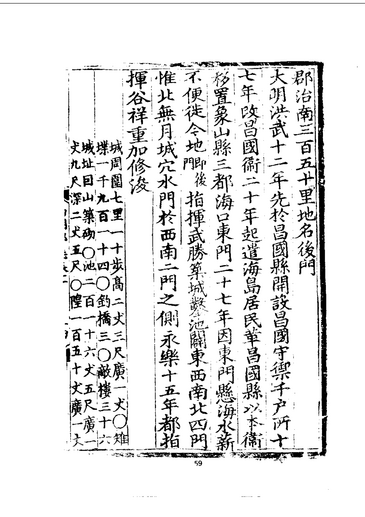 郡治南三百五十里地名後門
大明洪武十二年先於昌國縣開設昌國守禦千戶所十
七年改昌國衞二十年起遣海島居民革昌國縣以本衞
移置象山縣三都海口東門二十七年因東門懸海水薪
不便徙今地即後門指揮武勝築城鑿池闢東西南北四門
惟北無月城穴水門於西南二門之側永樂十五年都指
揮谷祥重加修浚
城周圍七里一十步高二丈三尺廣一丈〇雉
堞一千九百一十四〇釣橋三〇敵樓三十六
城址因山築砌〇池二百一十六丈五尺廣一
丈九尺深二丈五尺〇陞一百五十丈廣一丈
59